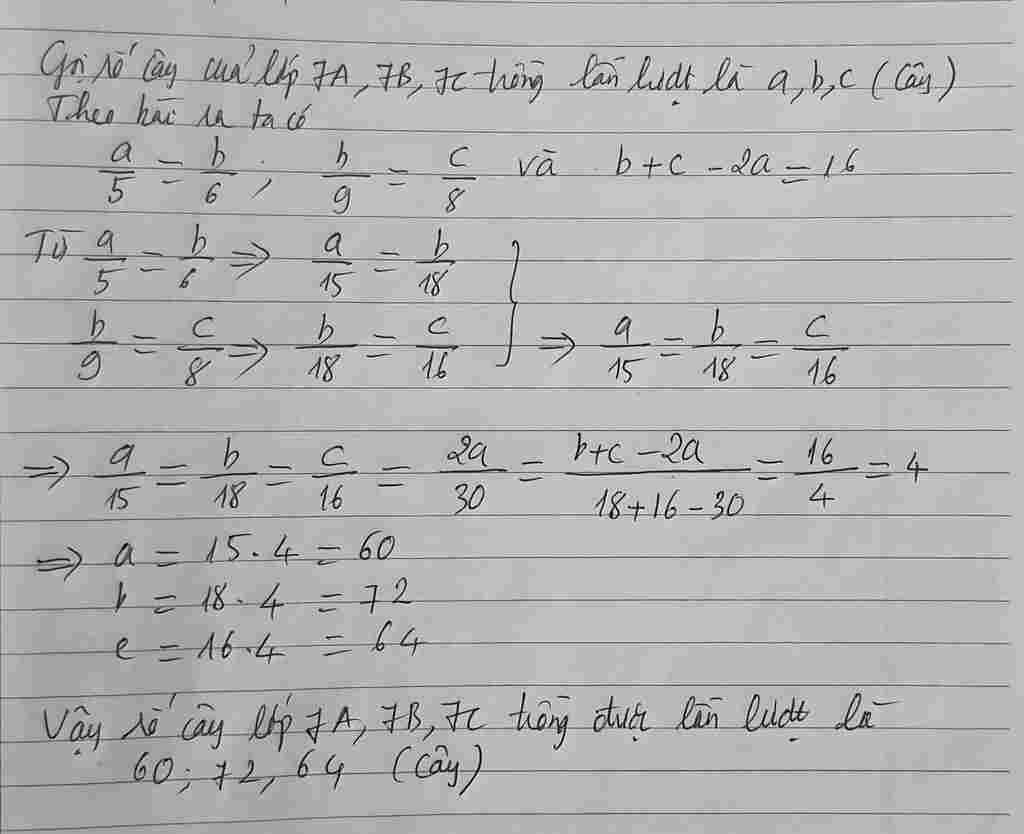 Gọi số cây của lớp 7A, 7B, 7C trồng lần lượt là a, b, c (cây)
Theo bài ra ta có
a/5 = b/6 ; b/9 = c/8 và b + c - 2a = 16
Từ a/5 = b/6 ⇒ a/15 = b/18
b/9 = c/8 ⇒ b/18 = c/16 } ⇒ a/15 = b/18 = c/16
⇒ a/15 = b/18 = c/16 = 2a/30 = (b+c-2a)/(18+16-30) = 16/4 = 4
⇒ a = 15 . 4 = 60
b = 18 . 4 = 72
c = 16 . 4 = 64
Vậy số cây lớp 7A, 7B, 7C trồng được lần lượt là
60; 72, 64 (cây)